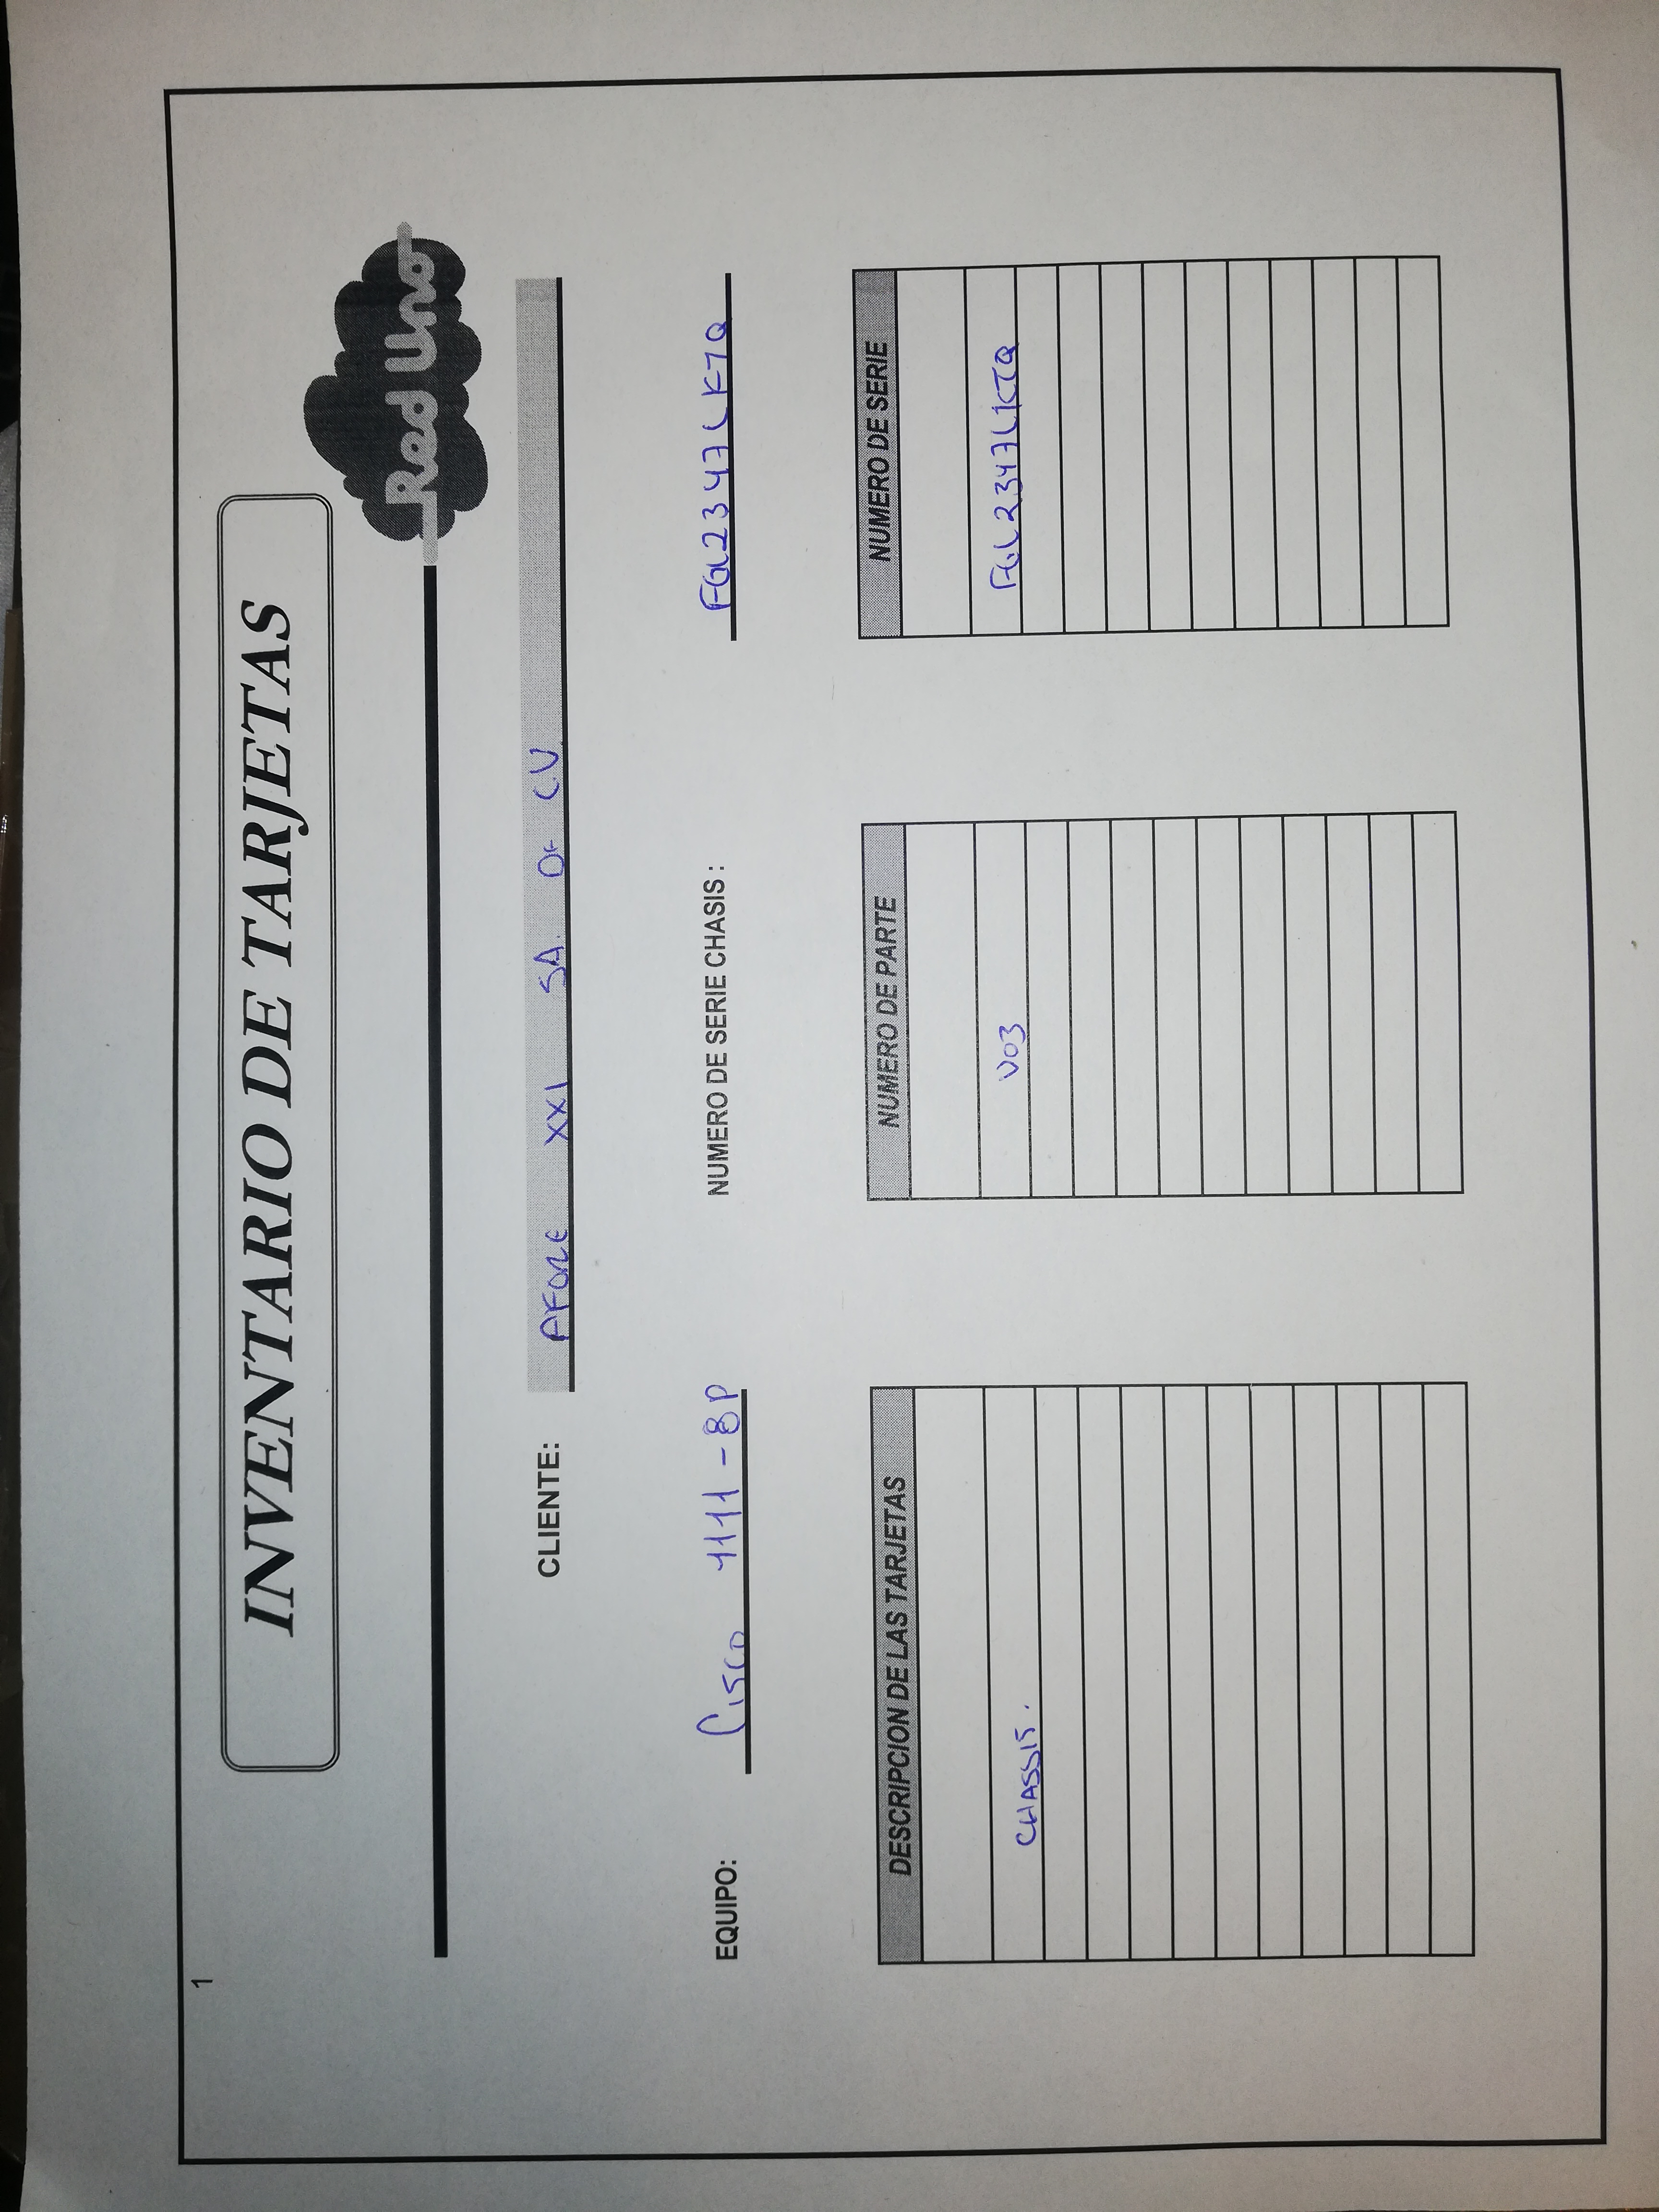 1
INVENTARIO DE TARJETAS
Red Uno
CLIENTE: AFORE XXI SA. DE CV
EQUIPO: Cisco 4111-8P NUMERO DE SERIE CHASIS : FGL2347LKTQ
DESCRIPCION DE LAS TARJETAS NUMERO DE PARTE NUMERO DE SERIE
CHASSIS. V03 FGL2347LKTQ